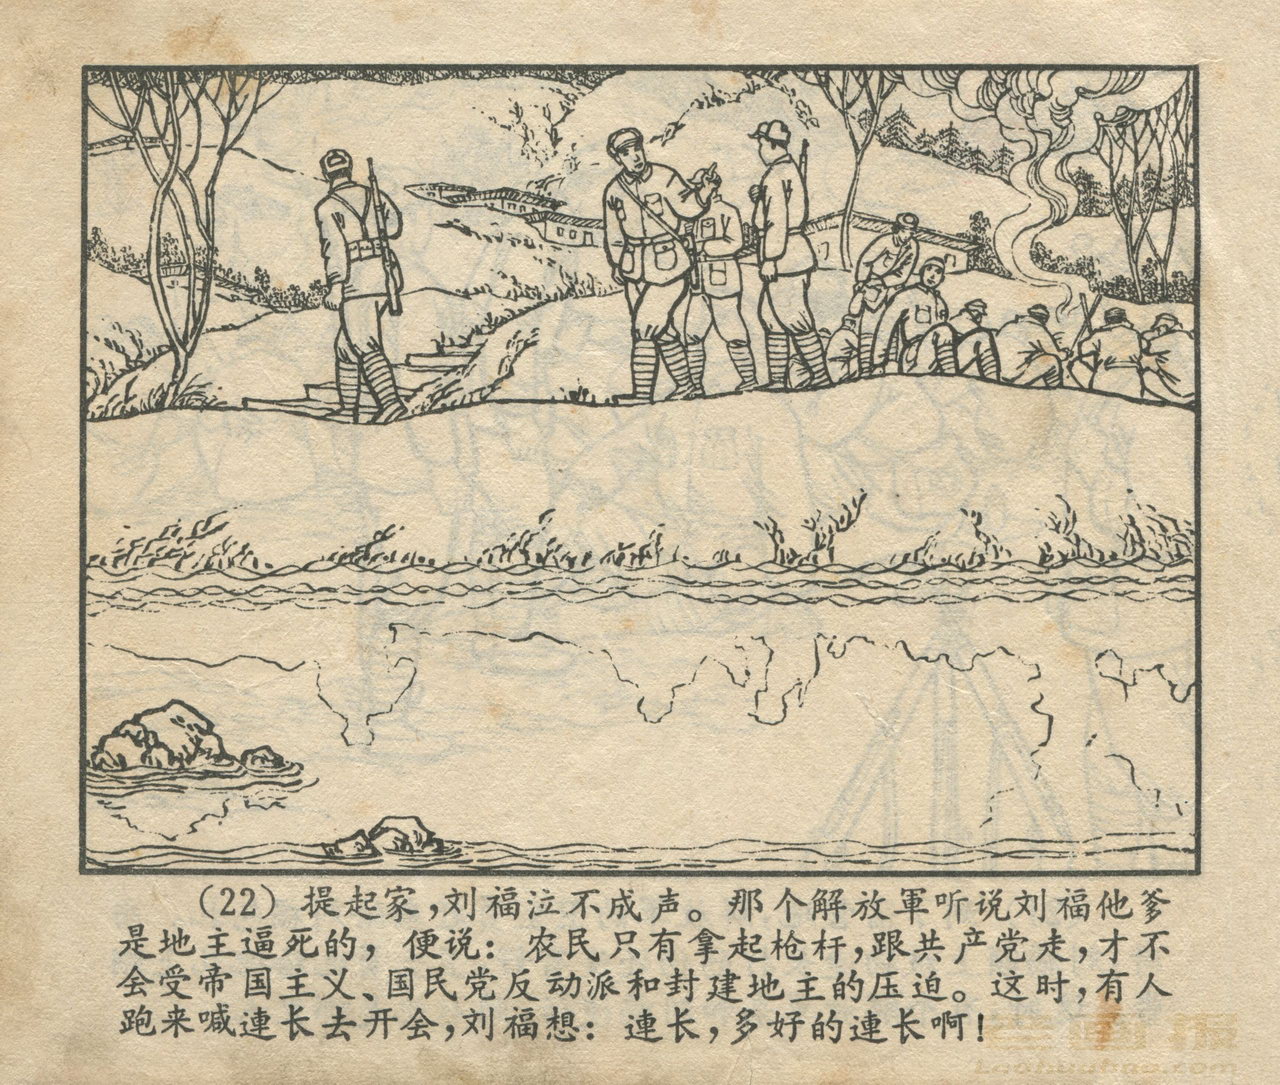 (22) 提起家,刘福泣不成声。那个解放軍听说刘福他爹
是地主逼死的，便说：农民只有拿起枪杆,跟共产党走,才不
会受帝国主义、国民党反动派和封建地主的压迫。这时,有人
跑来喊連长去开会,刘福想：連长,多好的連长啊!
老画报
Laohuabao.com